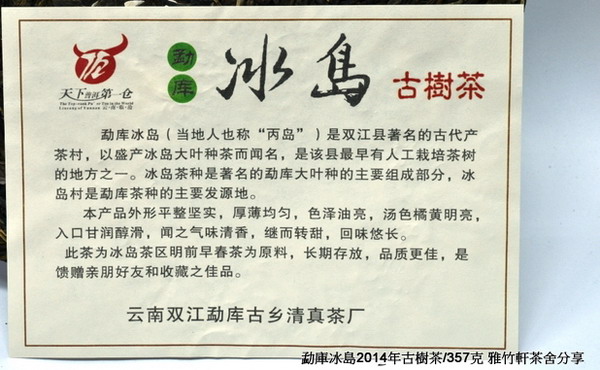 天下普洱第一仓
勐库
冰岛
古樹茶
勐库冰岛（当地人也称“丙岛”）是双江县著名的古代产
茶村，以盛产冰岛大叶种茶而闻名，是该县最早有人工栽培茶树
的地方之一。冰岛茶种是著名的勐库大叶种的主要组成部分，冰
岛村是勐库茶种的主要发源地。
本产品外形平整坚实，厚薄均匀，色泽油亮，汤色橘黄明亮，
入口甘润醇滑，闻之气味清香，继而转甜，回味悠长。
此茶为冰岛茶区明前早春茶为原料，长期存放，品质更佳，是
馈赠亲朋好友和收藏之佳品。
云南双江勐库古乡清真茶厂
勐庫冰島2014年古樹茶/357克 雅竹軒茶舍分享